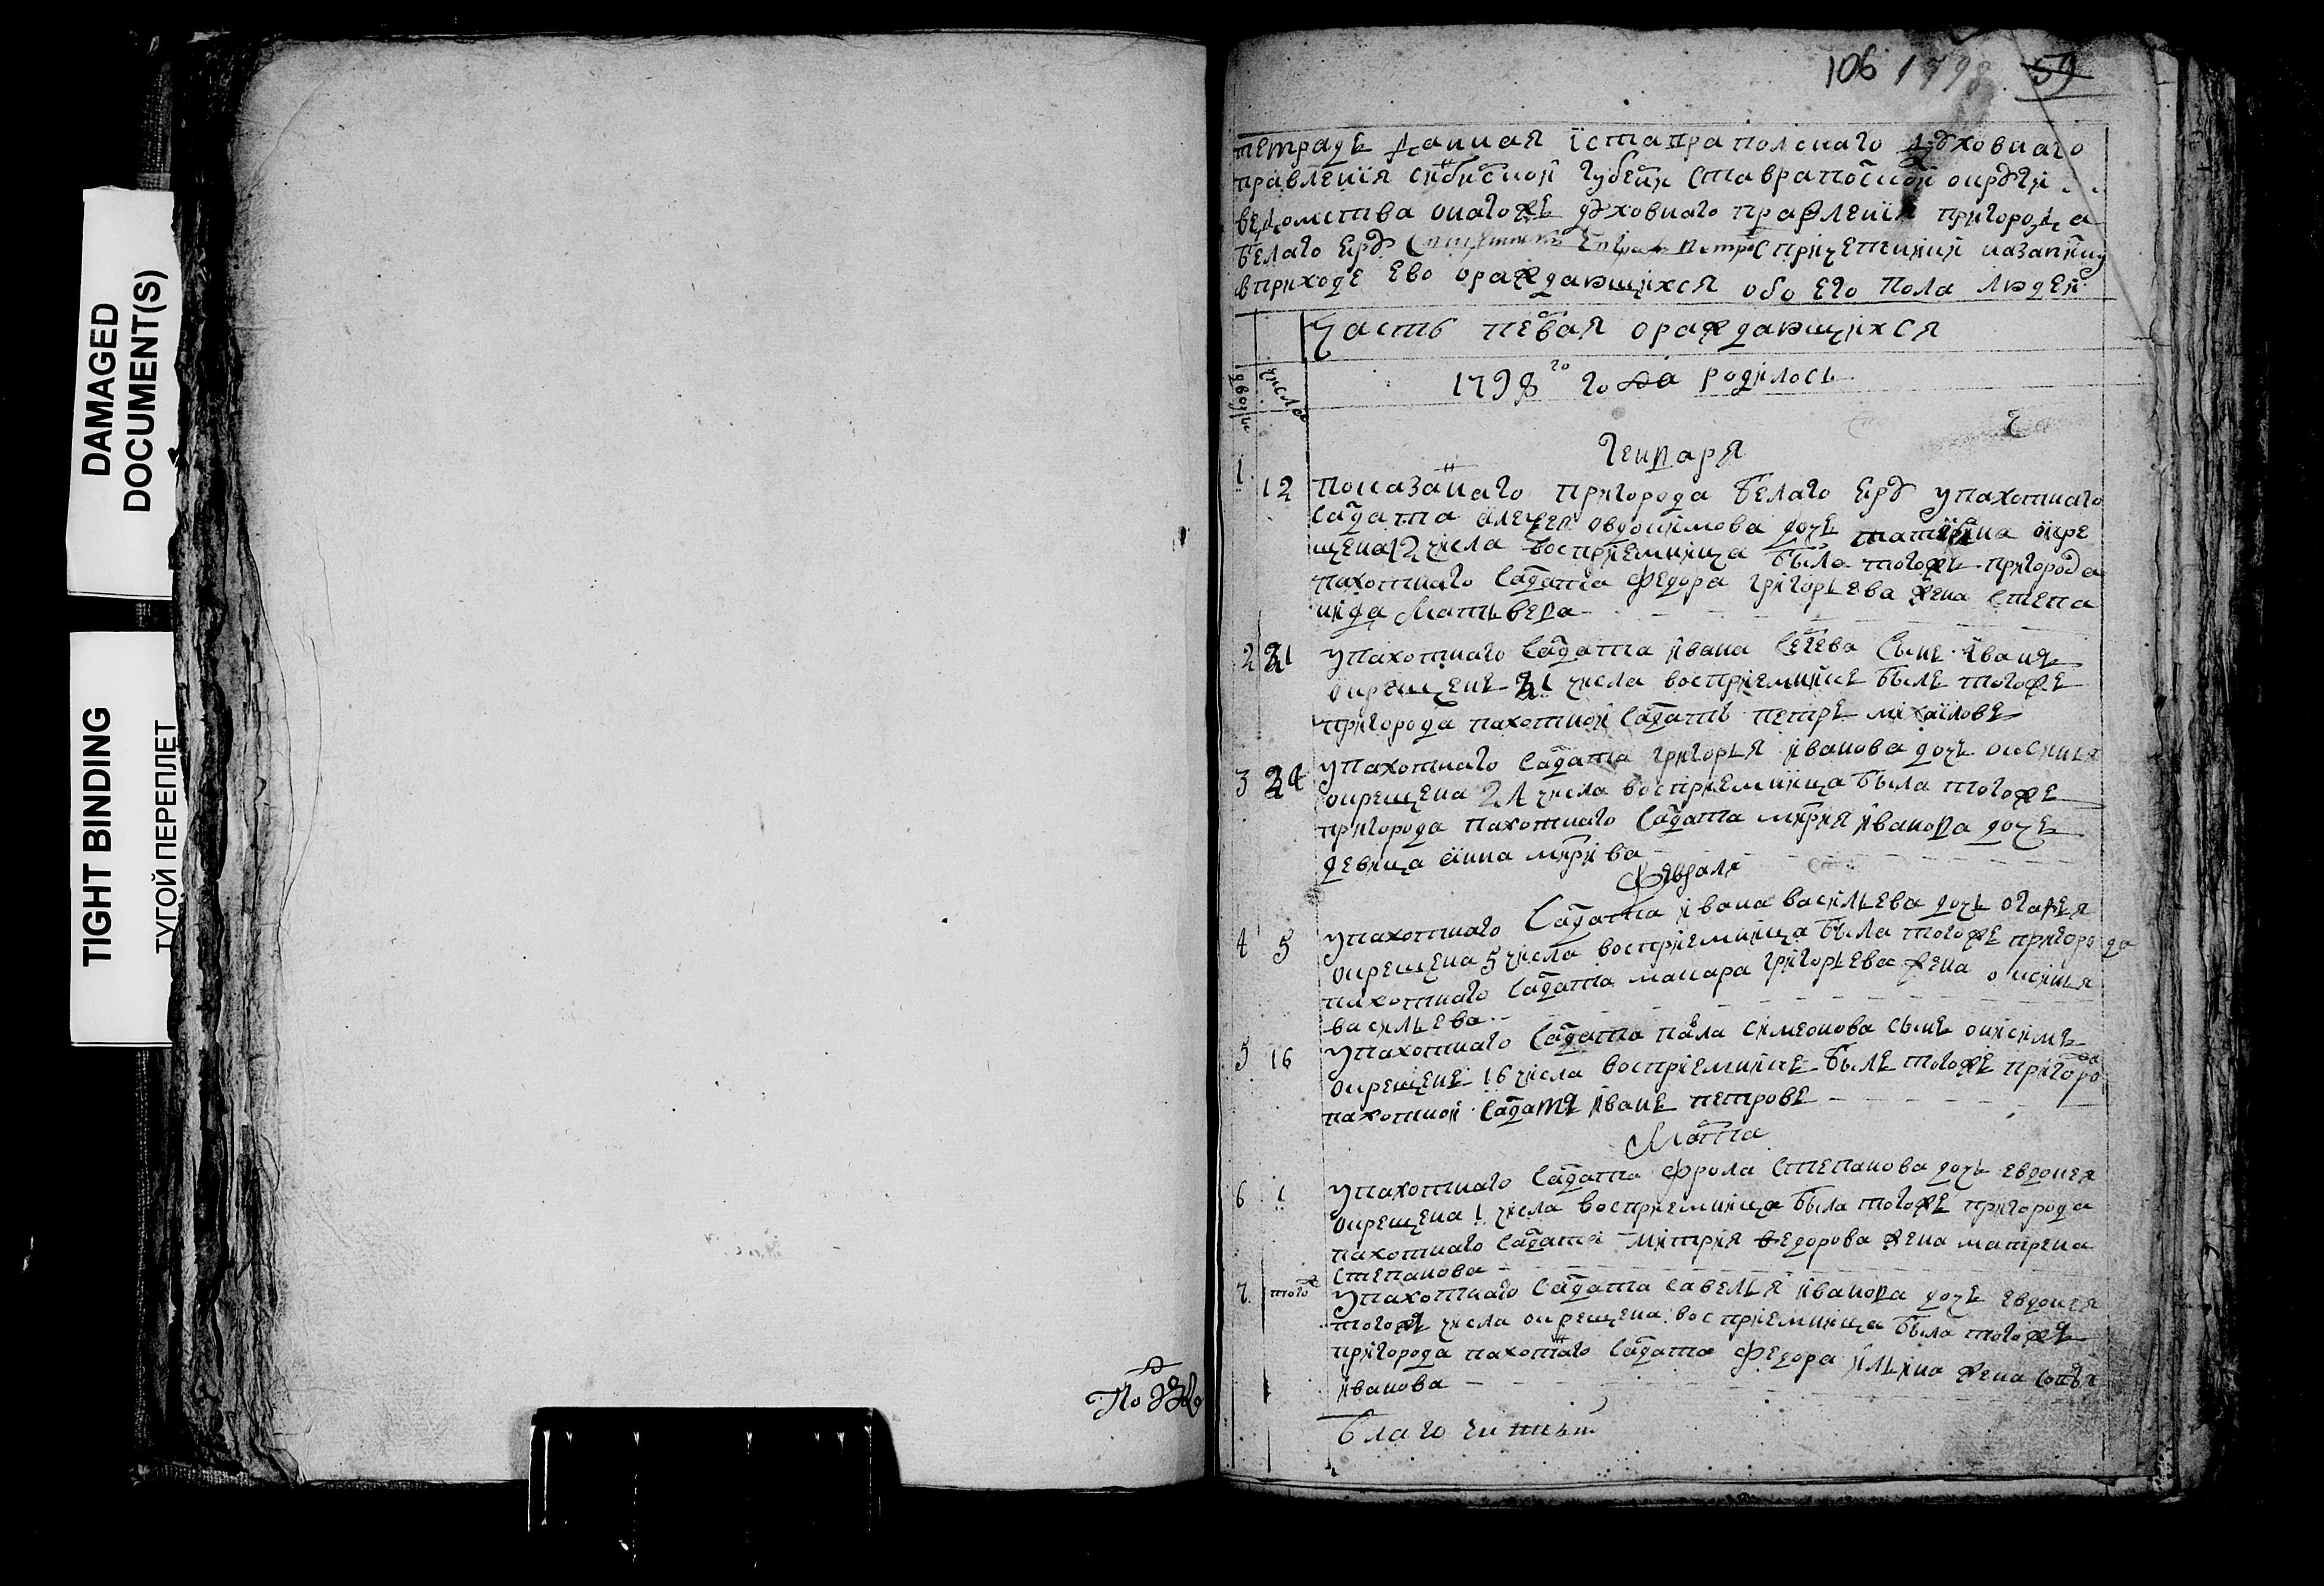 DAMAGED
DOCUMENT(S)
TIGHT BINDING
ТУГОЙ ПЕРЕПЛЕТ
106 1798 59
тетрадь данная їставрапольскаго духовнаго
правленїя синбиской губерни ставрапоской округи
ведомства онагожъ духовнаго правленїя пригорода
белаго Ерў священнику Петру спричетники
вприходе ево ораждающихся обоего пола людей
часть первая ораждающихся
числа
1798 го года родилось
Генваря
1 12 показаннаго пригорода белаго Ерў упахотнаго
салдата алеѯея овдокимова дочь татияна окре
щена 12 числа восприемница была тогожъ пригорода
пахотнаго салдата федора григорьева жена степа
нида Матьвеева
2 21 упахотнаго салдата ивана сергева сынъ иванъ
окрещенъ 21 числа восприемникъ былъ тогоже
пригорода пахотной салдатъ петръ михаиловъ
3 24 упахотнаго салдата григорья иванова дочь оксинья
окрещена 24 числа восприемница была тогоже
пригорода пахотнаго салдата митрия иванова дочь
девица анна митрива
Февраля
4 5 упахотнаго салдата ивана васильева дочь огафья
окрещена 5 числа восприемница была тогоже пригорода
пахотнаго салдата макара григорьева жена оксинья
васильева
5 16 упахотнаго салдата павла симеонова сынъ онисимъ
окрещенъ 16 числа восприемникъ былъ тогоже пригоро
пахотной салдатъ иванъ петровъ
Марта
6 1 упахотнаго салдата фрола степанова дочь евдокея
окрещена 1 числа восприемница была тогоже пригорода
пахотнаго салдата митрия ѳедорова жена матрена
степанова
7 тогож упахотнаго салдата савелья иванова дочь евдокея
тогожъ числа окрещена восприемница была тогожъ
пригорода пахотнаго салдата федора ильина жена софья
иванова
По